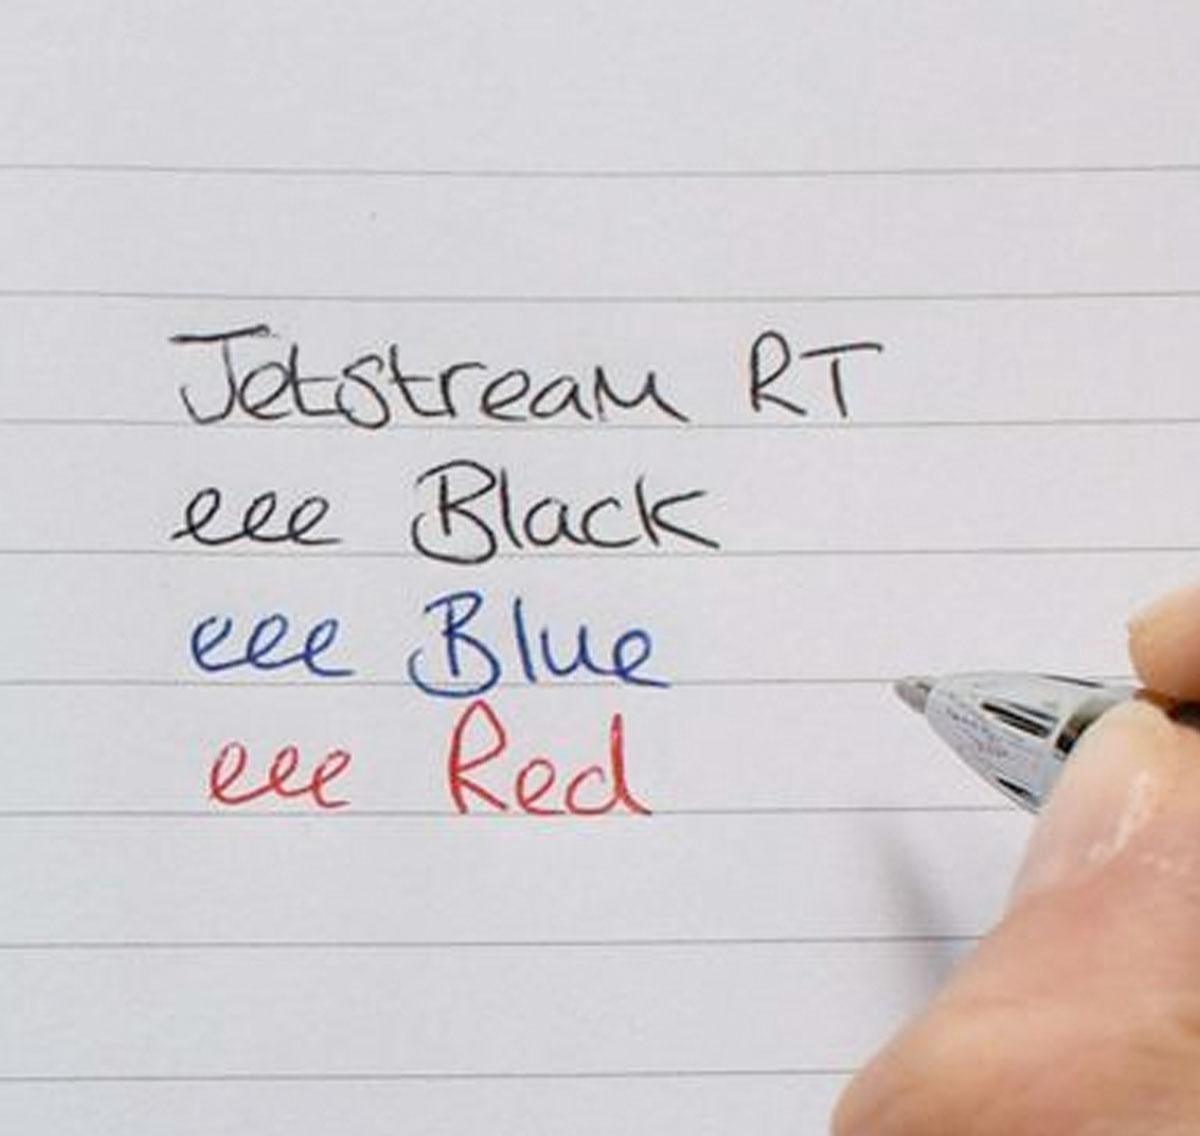 Jetstream RT
eee Black
eee Blue
eee Red